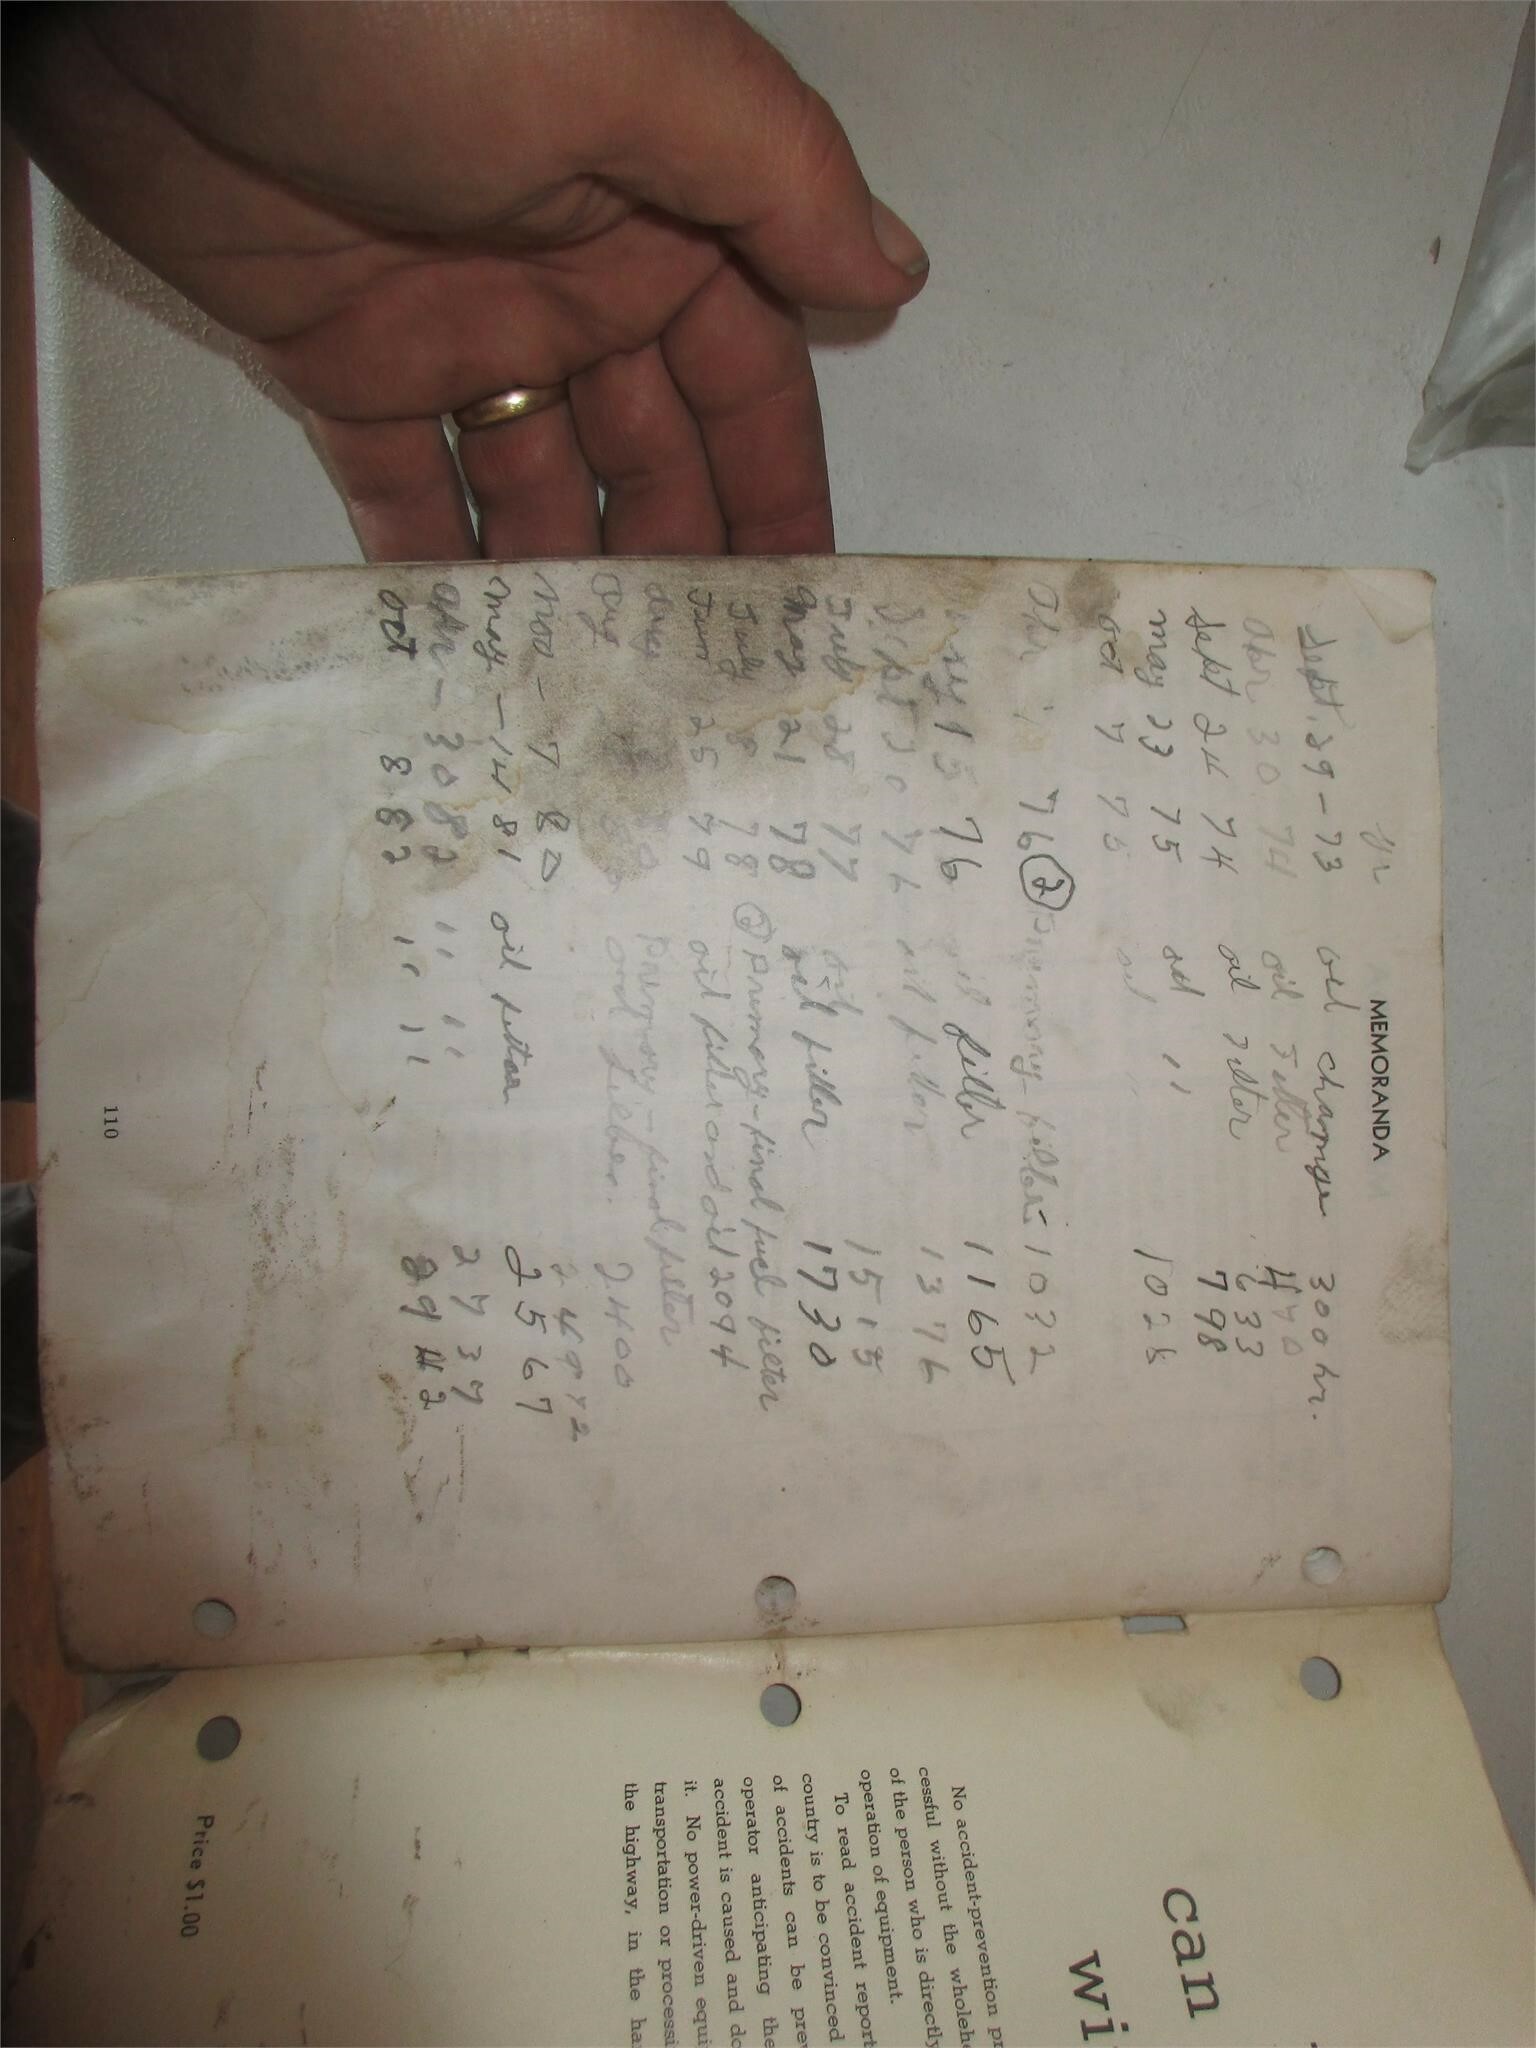 MEMORANDA
yr
Sept. 29 - 73 oil change 300 hr.
Apr 30 74 oil Filter 470
633
Sept 24 74 oil Filter 798
May 23 75 oil "
oct 7 75 oil " 1028
Apr 76 ② Primmary - filter 1032
15 76 oil filter 1165
Sept 30 76 oil filter 1376
July 28 77 oil 1515
May 21 78 oil filler 1730
July 8 78 ② primary - final fuel filter
Jun 25 79 oil filter and oil 2094
Primary - final filter
2400
Nov - 7 80 2492
May - 14 81 oil filter 2567
Apr - 30 82 " " 2737
Oct 8 82 " " 2942
110
can
wi
No accident-prevention pr
cessful without the wholehe
of the person who is directly
operation of equipment.
To read accident report
country is to be convinced
of accidents can be prev
operator anticipating the
accident is caused and do
it. No power-driven equi
transportation or processi
the highway, in the ha
Price $1.00